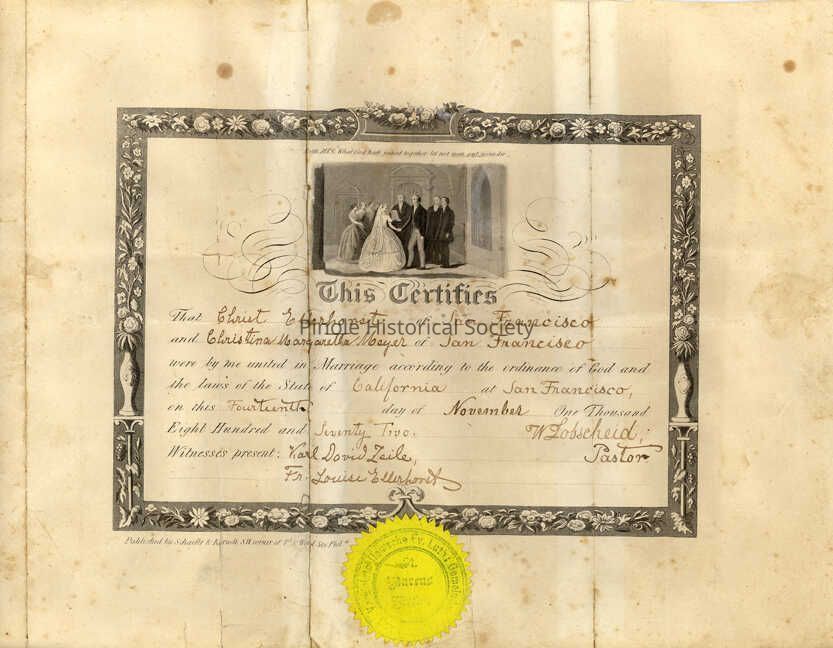 What God hath joined together let not man put asunder.
This Certifies
That Christ Ellerhorst of San Francisco
Pinole Historical Society
and Christina Margaretha Meyer of San Francisco
were by me united in Marriage according to the ordinance of God and
the laws of the State of California at San Francisco,
on this Fourteenth day of November One Thousand
Eight Hundred and Seventy Two.
W Lobscheid,
Witnesses present: Karl David Zeile,
Pastor
Fr. Louise Ellerhorst
Published by Schaefer & Koradi S.W corner of 4th & Wood Sts Phila
St.
Marcus